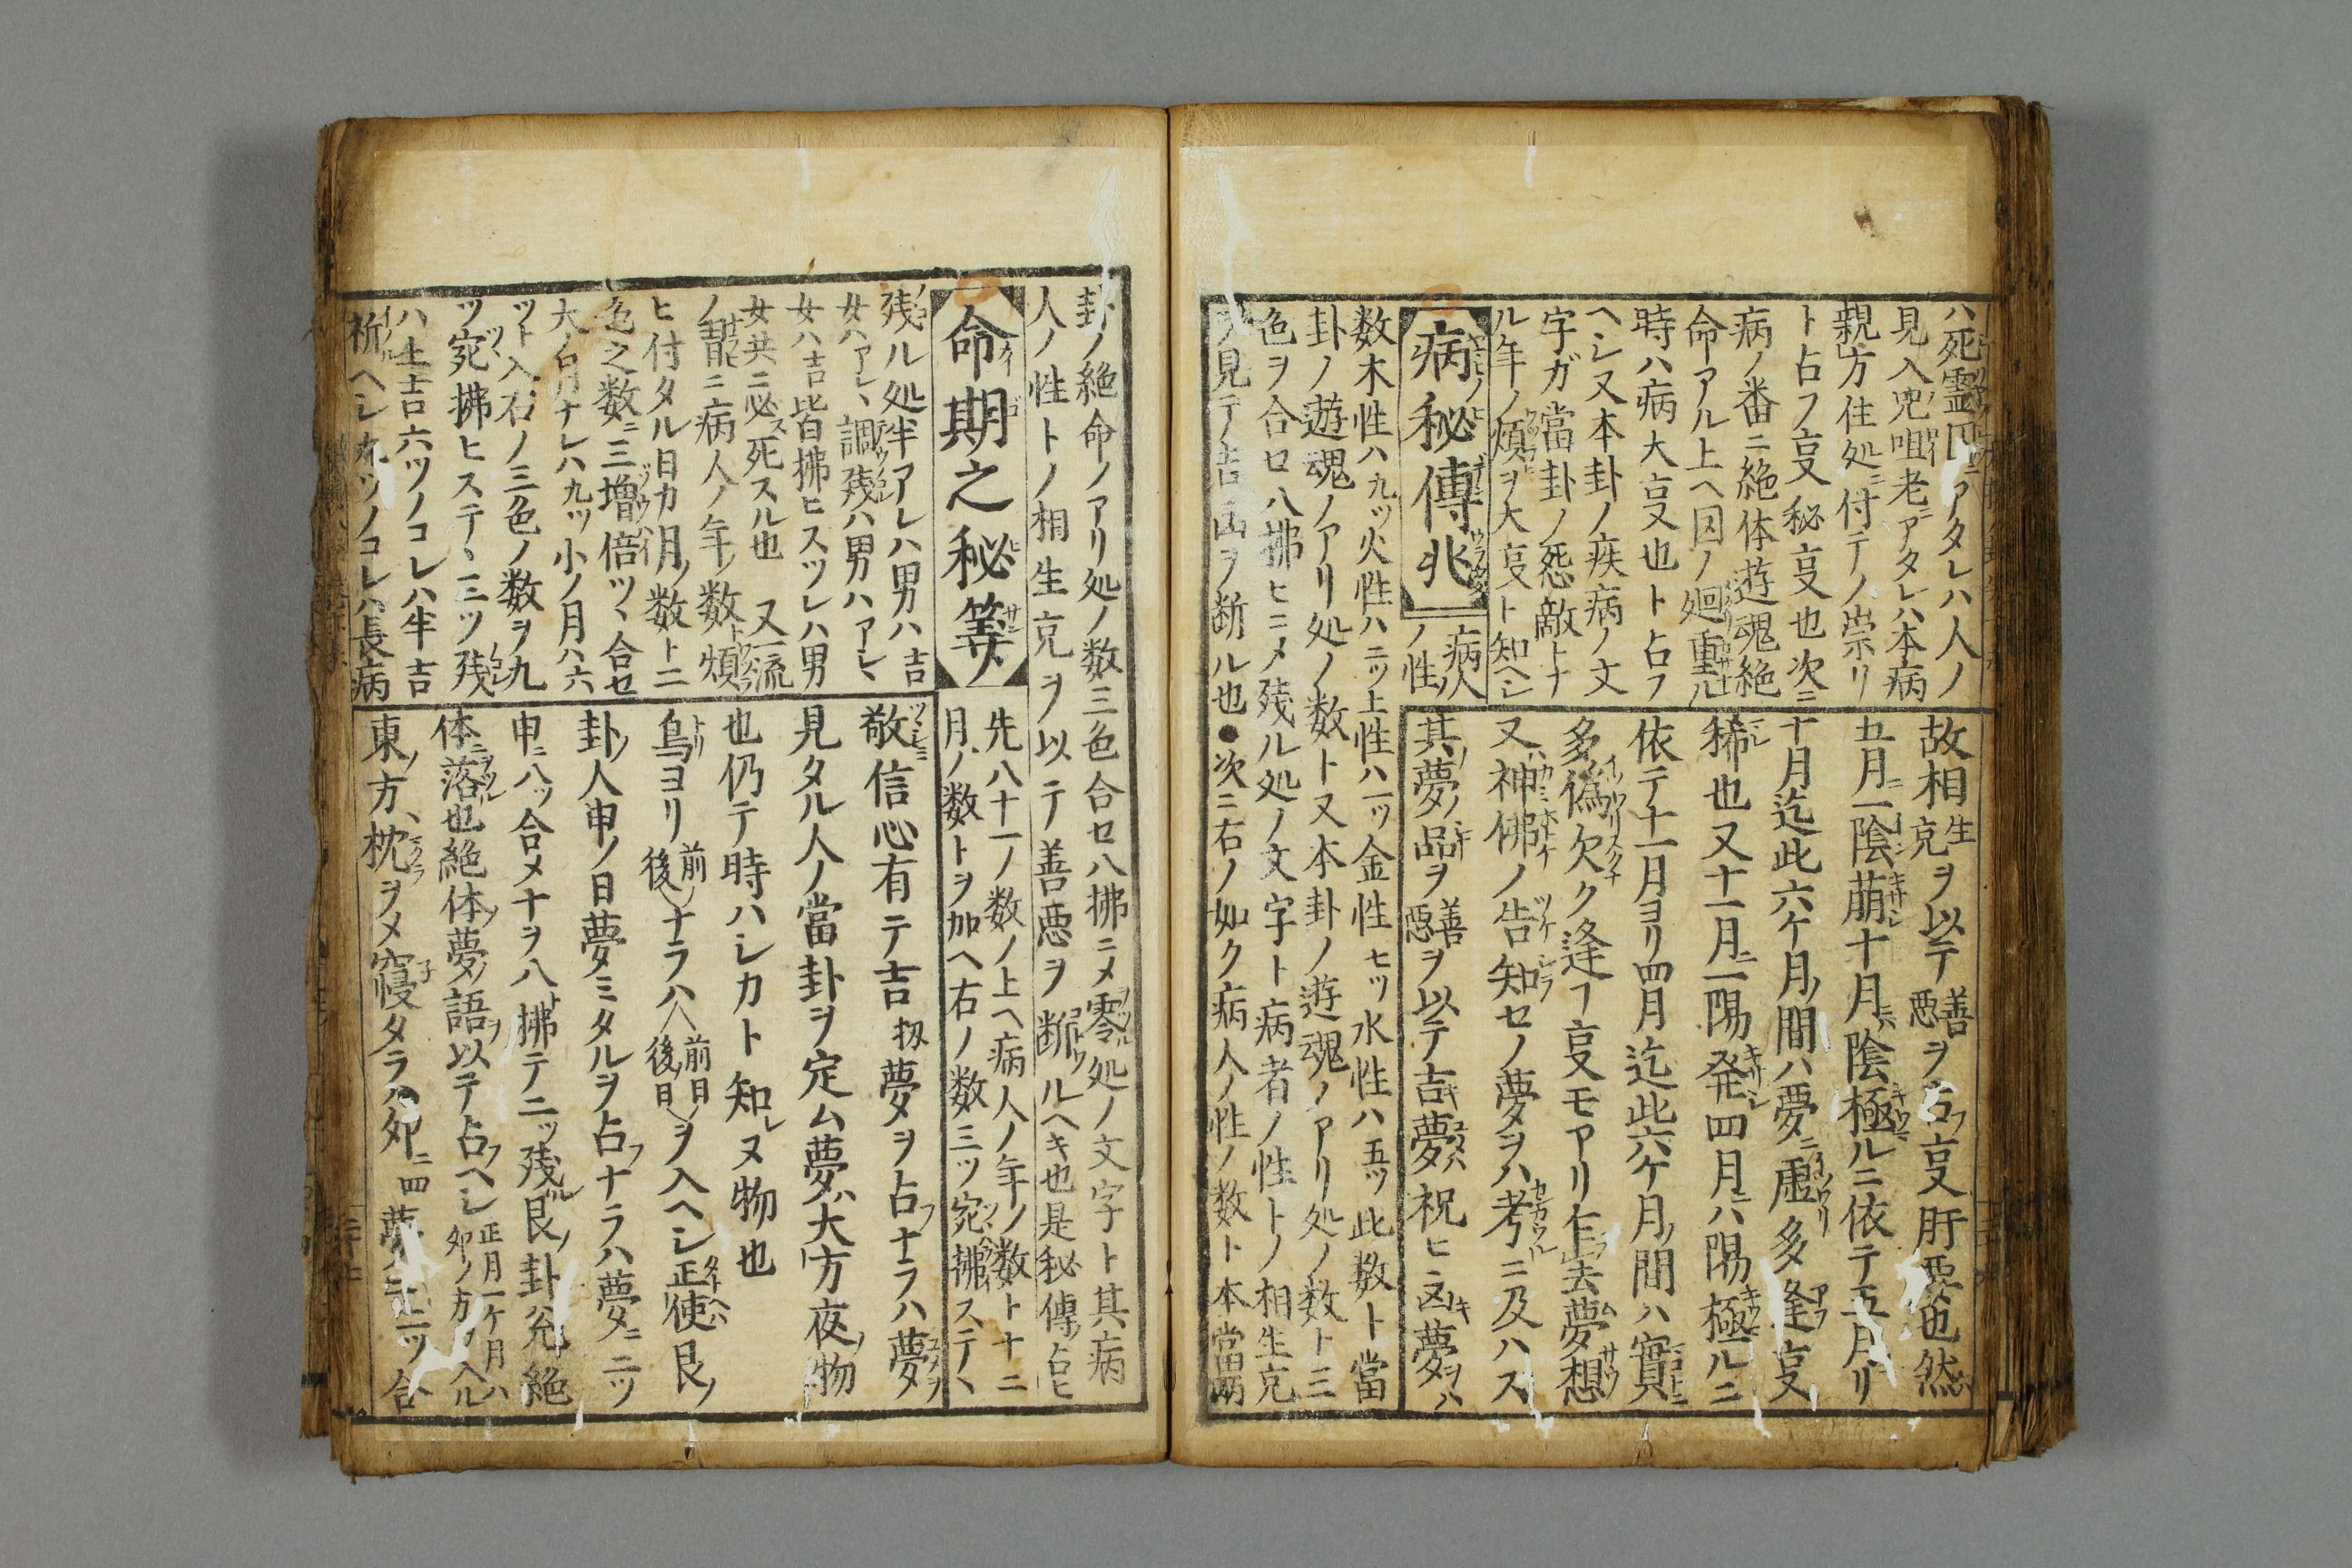 ハ死霊四ニアタレハ人ノ
見入兜咀老ニアタレハ本病
親方住処ニ付テノ祟リ
ト占フ㕝秘㕝也次ニ
病ノ番ニ絶体遊魂絶
命アル上ヘ囚ノ廻重ル
時ハ病大㕝也ト占フ
ヘシ又本卦ノ疾病ノ文
字ガ當卦ノ怨敵トナ
ル年ノ煩ヲ大㕝ト知ヘシ
病秘傳兆
病人
ノ性
数木性ハ九ッ火性ハ二ッ土性ハ一ッ金性七ッ水性ハ五ッ此数ト當
卦ノ遊魂ノアリ処ノ数ト又本卦ノ遊魂ノアリ処ノ数ト三
色ヲ合セ八拂ヒニメ残ル処ノ文字ト病者ノ性トノ相生克
見テ吉凶ヲ断ル也●次ニ右ノ如ク病人ノ性ノ数ト本當両
故相生克ヲ以テ善悪ヲ占フ㕝肝要也然ハ
五月ニ一陰萠十月ニハ陰極ルニ依テ五月ヨリ
十月迄此六ケ月ノ間ハ夢ニ虚多逢㕝
稀也又十一月ニ一陽発四月ニハ陽極ルニ
依テ十一月ヨリ四月迄此六ケ月ノ間ハ實
多偽欠ク逢フ㕝モアリ乍去夢想
又ハ神佛ノ告知セノ夢ヲハ考ニ及ハス
其夢ノ品ヲ善悪ヲ以テ吉夢ハ祝ヒ凶夢ヲハ
卦ノ絶命ノアリ処ノ数三色合セ八拂ニメ零処ノ文字ト其病
人ノ性トノ相生克ヲ以テ善悪ヲ断ルヘキ也是秘傳ノ占ヒ
命期之秘筭
先八十一ノ数ノ上ヘ病人ノ年ノ数ト十二
月ノ数トヲ加ヘ右ノ数三ツ宛拂ステヽ
残ル処半アレハ男ハ吉
女ハアレヽ調残ハ男ハアレヽ
女ハ吉皆拂ヒスツレハ男
女共ニ必ス死スル也 又一流
ノ説ニ病人ノ年ノ数ト煩
ヒ付タル日カ月ノ数ト二
色之数ニ三増倍ツヽ合セ
大ノ月ナレハ九ツ小ノ月ハ六
ツト入右ノ三色ノ数ヲ九
ツヽ宛拂ヒステヽ三ツ残
ハ土吉六ツノコレハ半吉
祈ヘシ九ツノコレハ長病
敬信心有テ吉扨夢ヲ占フナラハ夢ヲ
見タル人ノ當卦ヲ定ム夢ハ大方夜ノ物
也仍テ時ハシカト知レヌ物也
鳥ヨリ前後ノナラハ前日後日ノヲ入ヘシ正使ハ艮ノ
卦ノ人申ノ日夢ミタルヲ占フナラハ夢ニ二ツ
申ニハッ合メ十ヲ八拂テ二ッ残ル艮ノ卦ノ絶
体ニ落也絶体ノ夢ノ語ヲ以テ占フヘシ正月一ケ月ハ卯ノ方ヲ入ル
東ノ方ヽ枕ヲメ寝タラハ卯ニ四夢ニ二ツ合